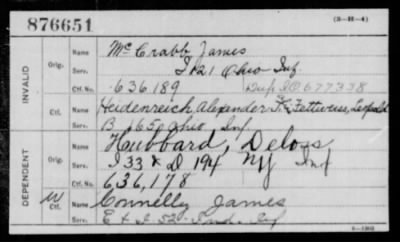 876651
(3-H-4)
INVALID
Orig.
Name
McCrabb James
Serv.
I 121 Ohio Inf.
Ctf. No.
636189
Dup I O 677338
Ctf.
Name
Heidenreich Alexander Fettweiss, Leopold
Serv.
B 165 Ohio Inf
DEPENDENT
Orig.
Name
Hubbard, Delos
Serv.
I 33 & D 194 NY Inf
Ctf. No.
636,178
W
Ctf.
Name
Connelly James
Serv.
E & I 52 Ind. Inf